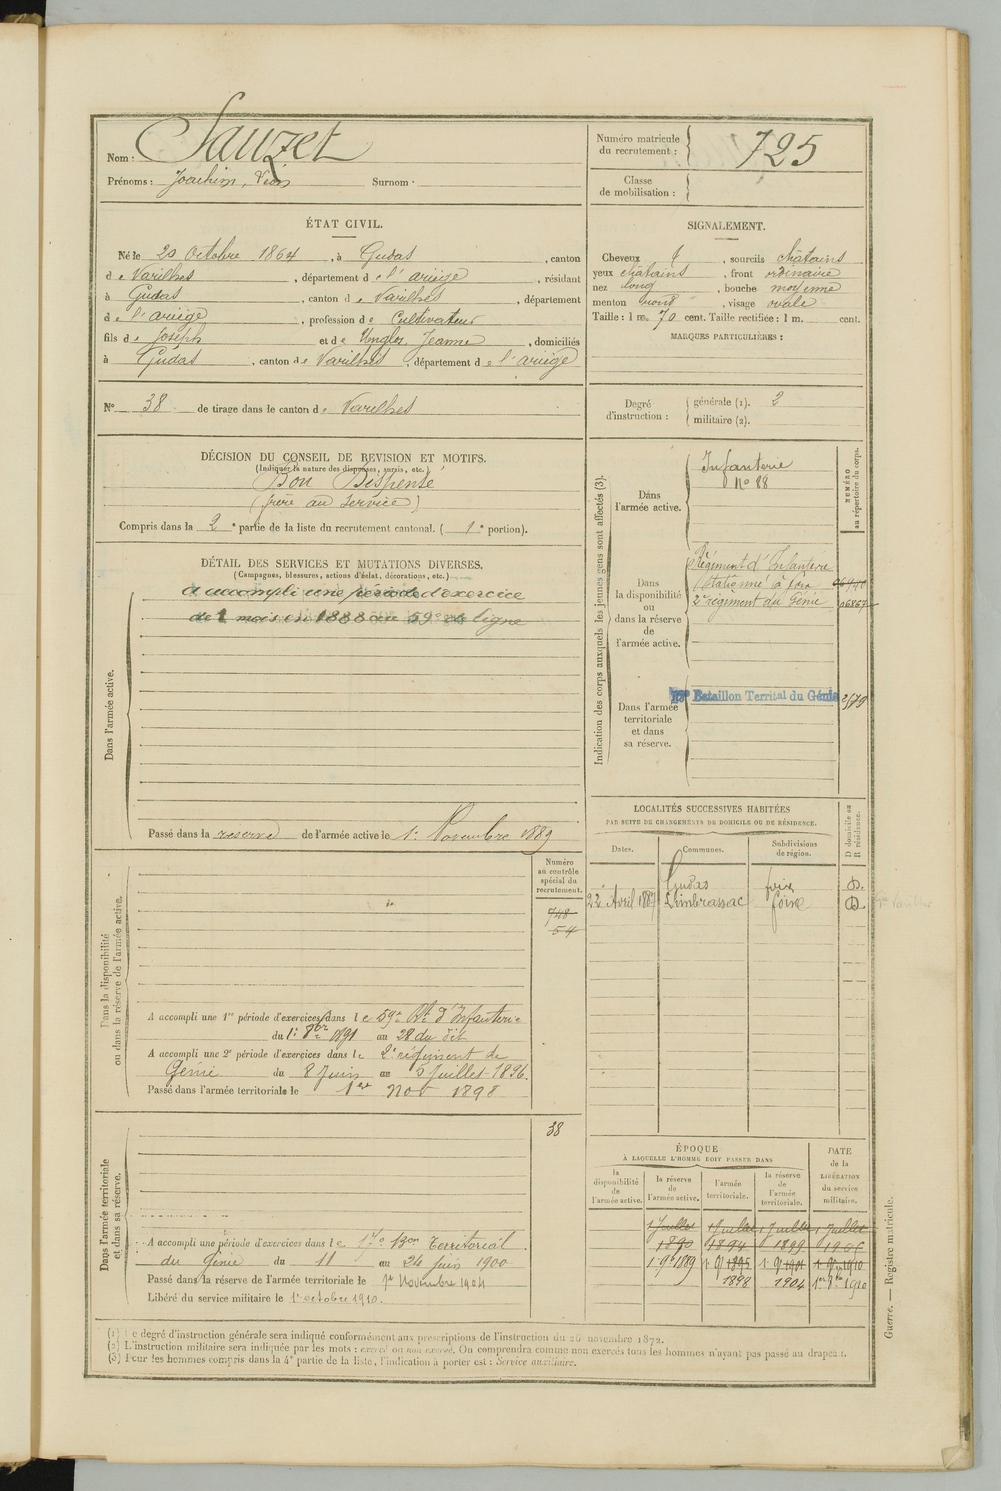 Nom : Sauzet
Prénoms : Joachim, Surnom .
Numéro matricule du recrutement : 725
Classe de mobilisation :
ÉTAT CIVIL.
Né le 20 Octobre 1864, à Gudas, canton
de Varilhes, département de l'ariège, résidant
à Gudas, canton de Varilhes, département
de l'ariège, profession de Cultivateur
fils de Joseph et de Jeanne, domiciliés
à Gudas, canton de Varilhes, département de l'ariège
N° 38 de tirage dans le canton de Varilhes
SIGNALEMENT.
Cheveux, sourcils châtains
yeux châtains, front ordinaire
nez long, bouche moyenne
menton rond, visage ovale
Taille : 1 m. 70 cent. Taille rectifiée : 1 m. cent.
MARQUES PARTICULIÈRES :
Degré d'instruction : générale (1). 2
militaire (2).
DÉCISION DU CONSEIL DE REVISION ET MOTIFS.
(Indiquer la nature des dispenses, sursis, etc.)
Bon Dispensé
(frère au service)
Compris dans la 2e partie de la liste du recrutement cantonal. (1e portion).
DÉTAIL DES SERVICES ET MUTATIONS DIVERSES.
(Campagnes, blessures, actions d'éclat, décorations, etc.)
Dans l'armée active.
a accompli une période d'exercice
de 1 mois en 1888 au 59e de ligne
Passé dans la reserve de l'armée active le 1: Novembre 1889
Indication des corps auxquels les jeunes gens sont affectés (3).
NUMÉRO au répertoire du corps.
Dans l'armée active.
Infanterie
N° 88
Dans la disponibilité ou dans la réserve de l'armée active.
Régiment d'Infanterie
(stationné à foix
2e régiment du Génie
Dans l'armée territoriale et dans sa réserve.
Bataillon Territal du Génie
LOCALITÉS SUCCESSIVES HABITÉES
PAR SUITE DE CHANGEMENTS DE DOMICILE OU DE RÉSIDENCE.
D domicile ou R résidence.
Dates. Communes. Subdivisions de région.
Gudas foix D.
22 Avril 1887 Limbrassac foix D
Dans la disponibilité ou dans la réserve de l'armée active.
Numéro au contrôle spécial du recrutement.
748
54
A accompli une 1re période d'exercices dans le 59e Rt d'Infanterie
du 1: 8bre 1891 au 28 du dit
A accompli une 2e période d'exercices dans le 2e régiment de
Génie du 8 Juin au 5 Juillet 1896.
Passé dans l'armée territoriale le 1er Nov 1898
Dans l'armée territoriale et dans sa réserve.
38
A accompli une période d'exercices dans le 17e Bon Territorial
du Génie du 11 au 24 juin 1900
Passé dans la réserve de l'armée territoriale le 1er Novembre 1904
Libéré du service militaire le 1er octobre 1910.
ÉPOQUE
À LAQUELLE L'HOMME DOIT PASSER DANS
DATE de la LIBÉRATION du service militaire.
la disponibilité de l'armée active. la réserve de l'armée active. l'armée territoriale. la réserve de l'armée territoriale.
1 Juillet 1 Juillet 1 Juillet 1 Juillet
1890 1894 1899 1905
1 9bre 1889 1 9bre 1895 1 9bre 1901 1 9bre 1910
1898 1904 1er 8bre 1910
Guerre. — Registre matricule.
(1) Le degré d'instruction générale sera indiqué conformément aux prescriptions de l'instruction du 26 novembre 1872.
(2) L'instruction militaire sera indiquée par les mots : exercé ou non exercé. On comprendra comme non exercés tous les hommes n'ayant pas passé au drapeau.
(3) Pour les hommes compris dans la 4e partie de la liste, l'indication à porter est : Service auxiliaire.